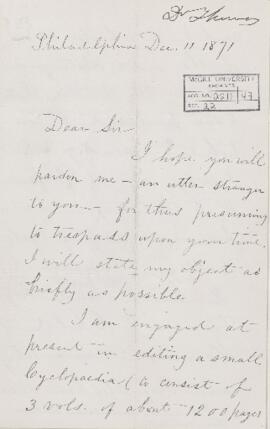 Dr Thomas
Philadelphia Dec. 11 1871
McGILL UNIVERSITY
ARCHIVES
ACC. NO. 2211 / 47
REF. 22
Dear Sir-
I hope you will
pardon me - an utter stranger
to you - for thus presuming
to trespass upon your time.
I will state my object as
briefly as possible.
I am engaged at
present in editing a small
Cyclopaedia (to consist of
3 vols. of about 1200 pages